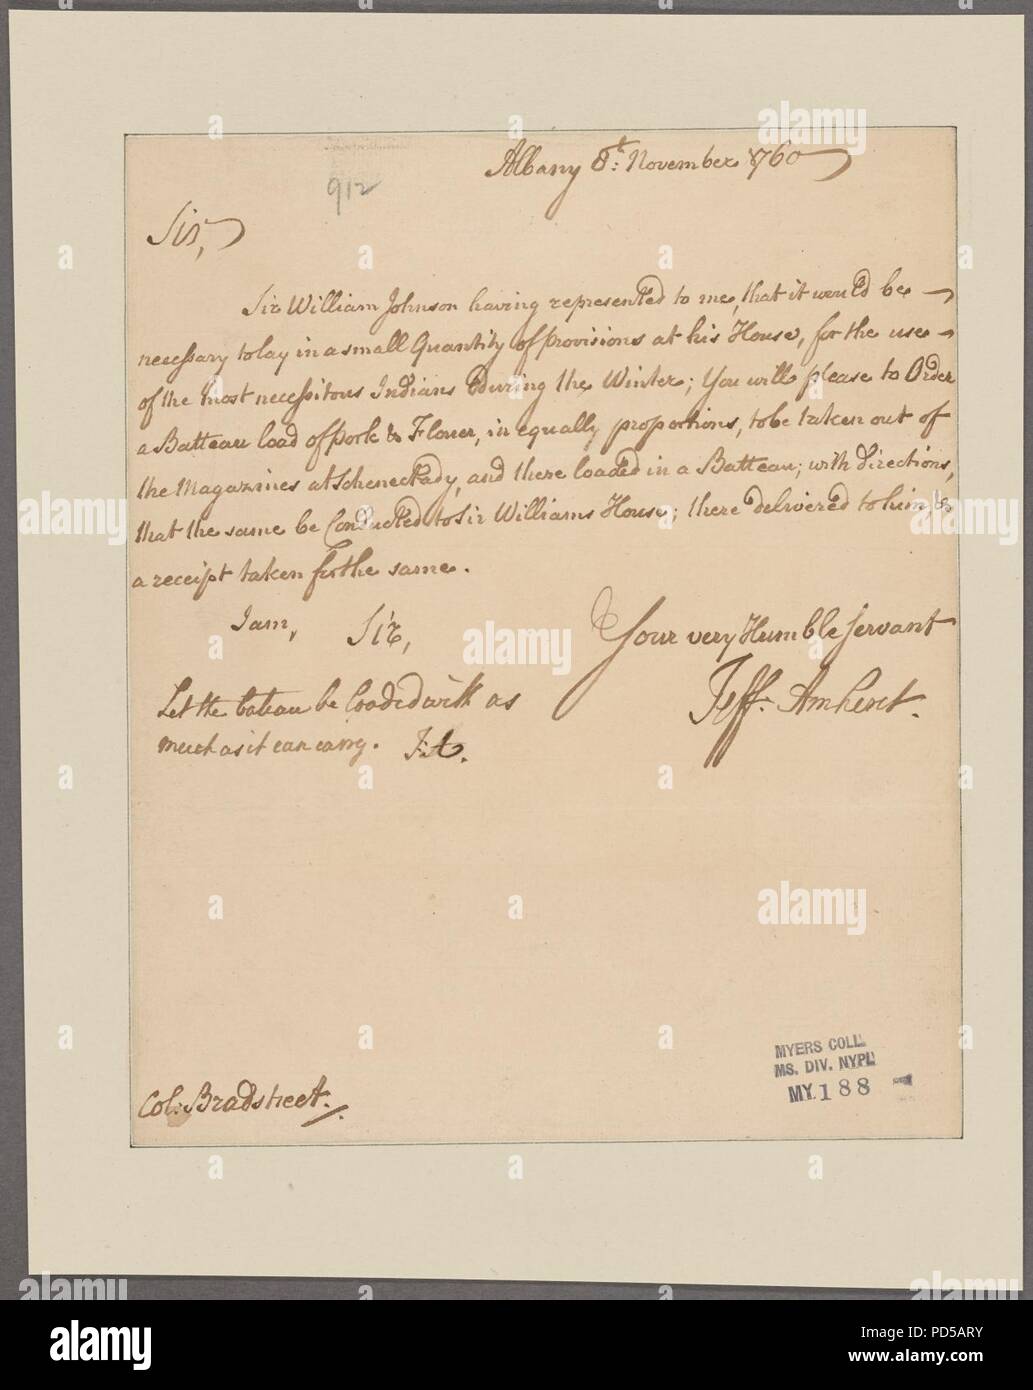 Albany 8t: November 1760
912
Sir,
Sir William Johnson having represented to me, that it would be
necessary to lay in a small Quantity of provisions at his House, for the use
of the most necessitous Indians during the Winter; You will please to Order
a Batteau load of pork & Flower, in equally proportions, to be taken out of
the Magazines at Schenectady, and there loaded in a Batteau; with directions,
that the same be Conducted to Sir Williams House; there delivered to him, &
a receipt taken for the same.
I am, Sir,
Your very Humble Servant
Jeff: Amherst.
Let the bateau be loaded with as
much as it can carry. J:A.
Col: Bradstreet.
MYERS COLL.
MS. DIV. NYPL
MY. 188
alamy
alamy
Image ID: PD5ARY
www.alamy.com